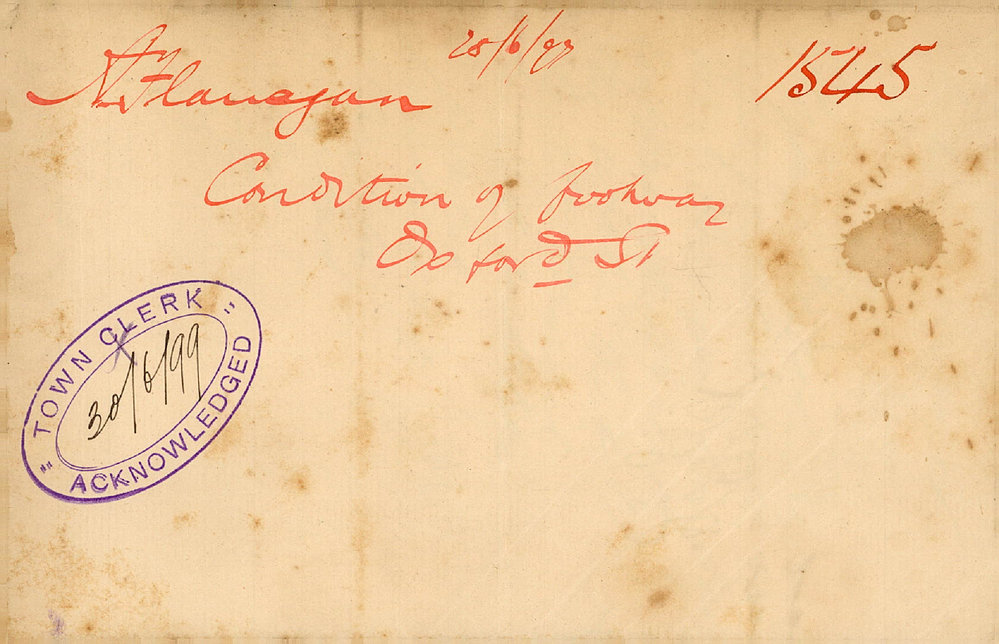 28/6/99
1545
Flanagan
Condition of footway
Oxford St
TOWN CLERK
30/6/99
ACKNOWLEDGED